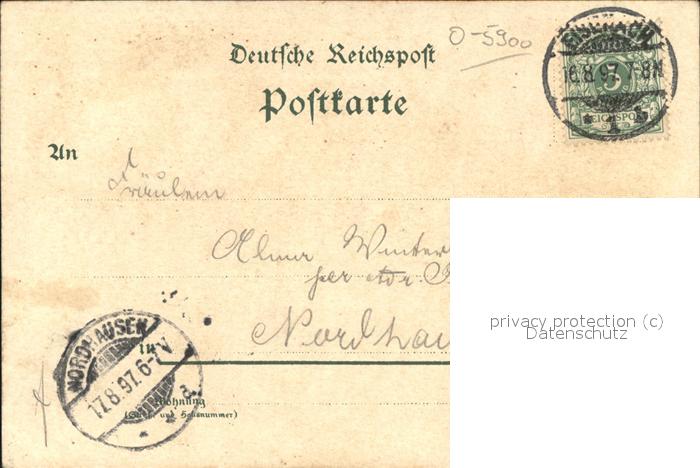 Deutsche Reichspost
Postkarte
O-5900
EISENACH
16.8.97.7-8N
* 1 *
5
REICHSPOST
An
Fräulein
Alma Winter
per adr.
Nordhau
in
NORDHAUSEN
17.8.97.6-7V
Wohnung
(Straße und Hausnummer)
privacy protection (c)
Datenschutz